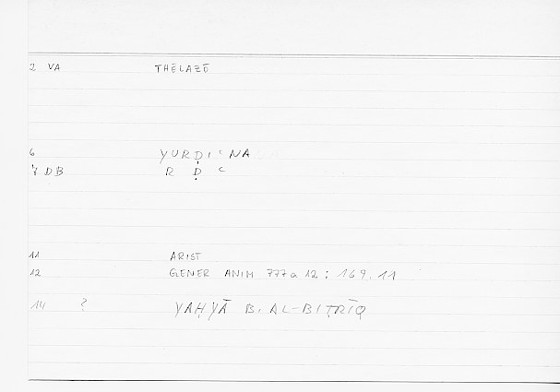 2 VA THĒLAZŌ
6 YURḌIʿNA
7 DB R Ḍ ʿ
11 ARIST
12 GENER ANIM 777a 12 : 169.11
14 ? YAḤYĀ B. AL-BIṬRĪQ